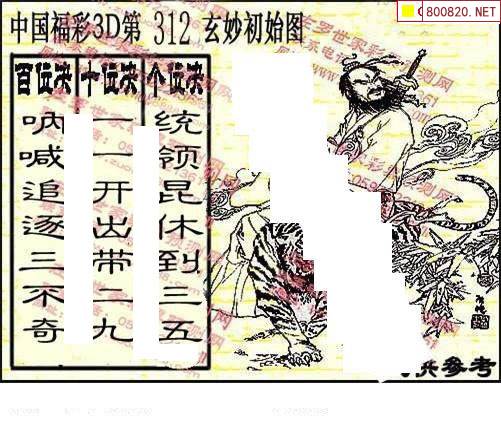 800820.NET
中国福彩3D第 312 玄妙初始图
百位决
呐喊追逐三不奇
十位决
一一开出带二九
个位决
统领昆休到三五
参考